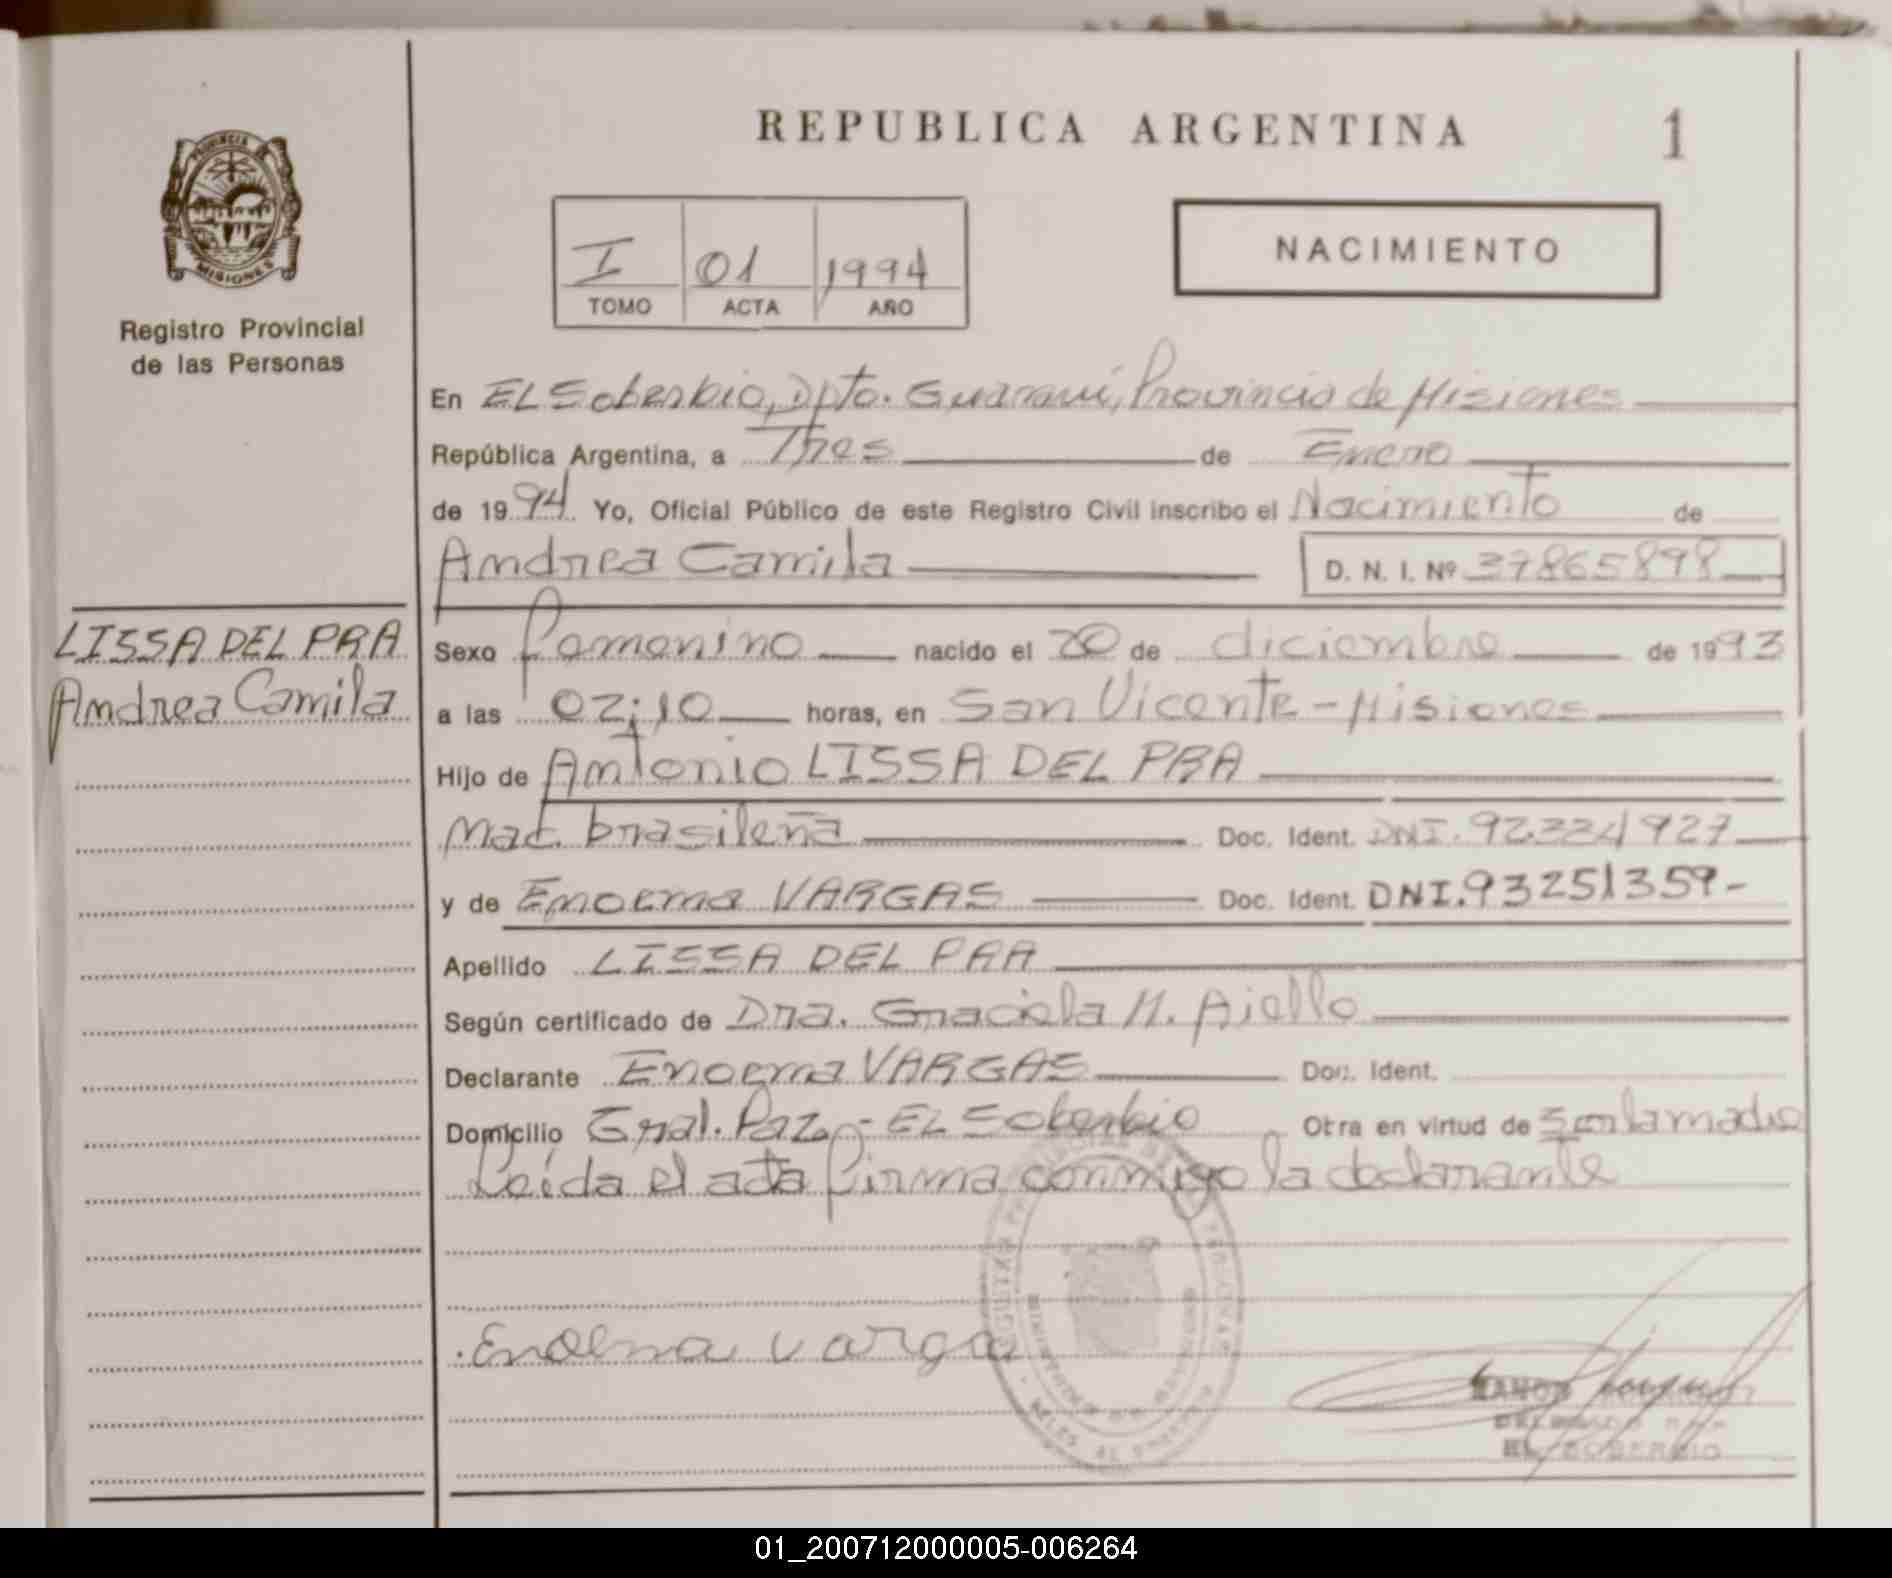 REPUBLICA ARGENTINA
1
PROVINCIA DE
MISIONES
Registro Provincial
de las Personas
I 01 1994
TOMO ACTA AÑO
NACIMIENTO
En EL Soberbio, Dpto. Guaraní, Provincia de Misiones
República Argentina, a Tres de Enero
de 1994 Yo, Oficial Público de este Registro Civil inscribo el Nacimiento de
Andrea Camila D. N. I. Nº 37865898
LISSA DEL PRA
Andrea Camila
Sexo Femenino nacido el 20 de diciembre de 1993
a las 02:10 horas, en San Vicente - Misiones
Hijo de Antonio LISSA DEL PRA
Nac. brasileña Doc. Ident. DNI. 92324927
y de Enoema VARGAS Doc. Ident. DNI. 93251359-
Apellido LISSA DEL PRA
Según certificado de Dra. Graciela M. Aiello
Declarante Enoema VARGAS Doc. Ident.
Domicilio Gral. Paz - EL Soberbio Otra en virtud de Ser la madre
Leída el acta firma conmigo la declarante
Enoema Varga
EL SOBERBIO
01_200712000005-006264